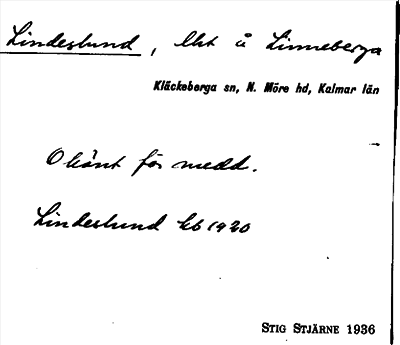 Lindeslund, lht å Linneberga
Kläckeberga sn, N. Möre hd, Kalmar län
Okänt för medd.
Lindeslund Eb 1920
STIG STJÄRNE 1936